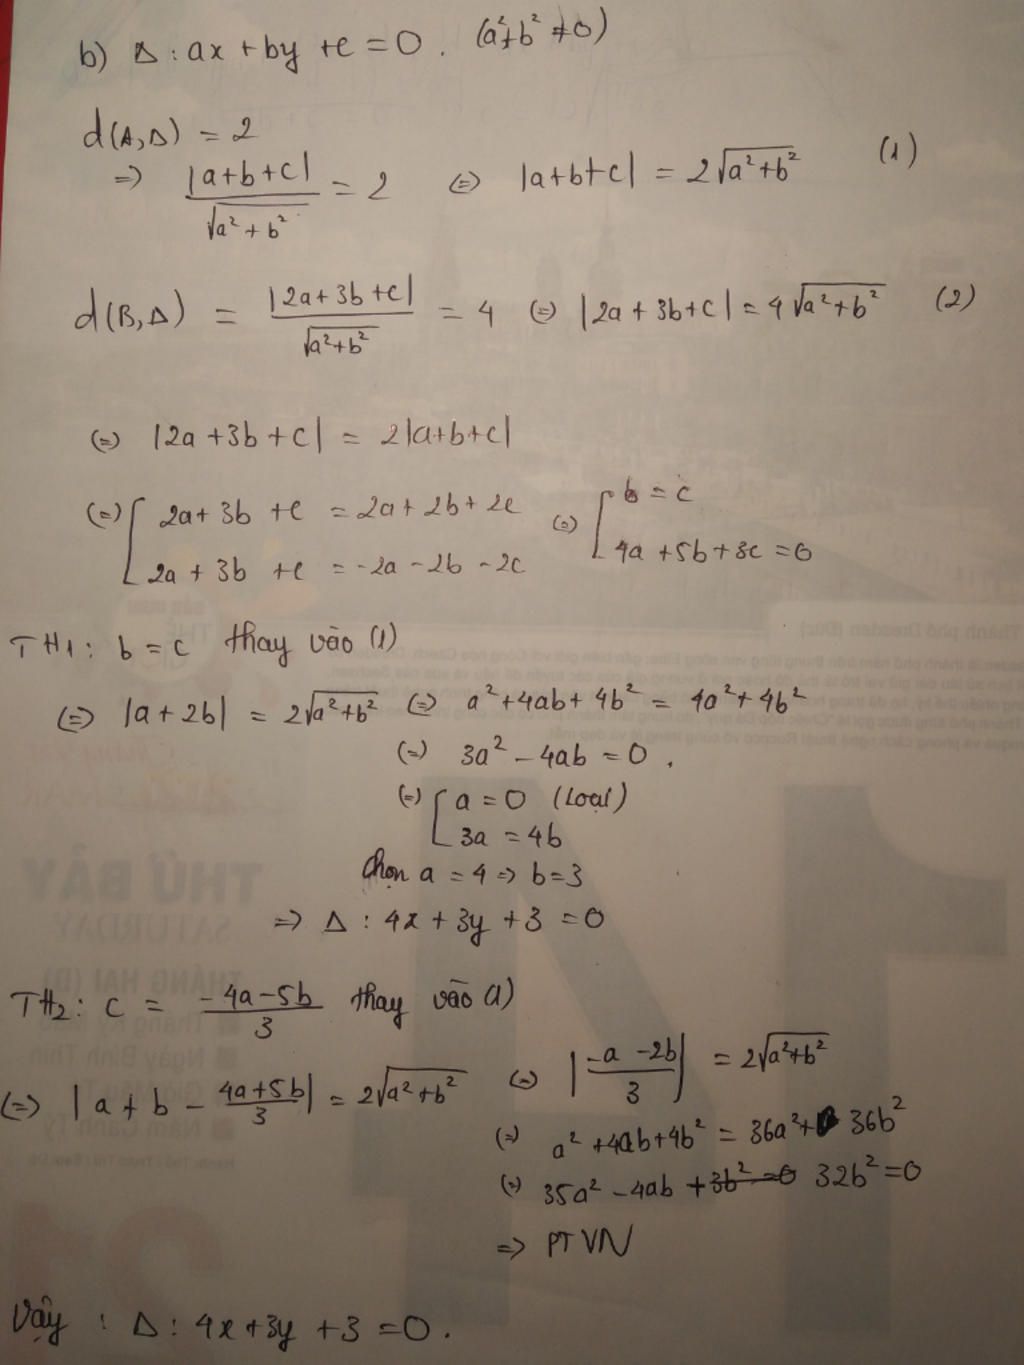 b) Δ : ax + by + c = 0 . (a² + b² ≠ 0)
d(A,Δ) = 2
=> |a+b+c| / √(a² + b²) = 2 (=) |a+b+c| = 2√(a² + b²) (1)
d(B,Δ) = |2a+3b+c| / √(a²+b²) = 4 (=) |2a + 3b + c| = 4√(a² + b²) (2)
(=) |2a +3b + c| = 2|a+b+c|
(=) [ 2a + 3b + c = 2a + 2b + 2c (=) [ b = c
2a + 3b + c = -2a - 2b - 2c 4a + 5b + 3c = 0
TH1 : b = c thay vào (1)
(=) |a + 2b| = 2√(a² + b²) (=) a² + 4ab + 4b² = 4a² + 4b²
(=) 3a² - 4ab = 0 .
(=) [ a = 0 (loại)
3a = 4b
Chọn a = 4 => b = 3
=> Δ : 4x + 3y + 3 = 0
TH2 : c = (-4a - 5b) / 3 thay vào (1)
(=) |a + b - (4a + 5b) / 3| = 2√(a² + b²) (=) |(-a - 2b) / 3| = 2√(a² + b²)
(=) a² + 4ab + 4b² = 36a² + 36b²
(=) 35a² - 4ab + 32b² = 0
=> PT VN
Vậy : Δ : 4x + 3y + 3 = 0 .